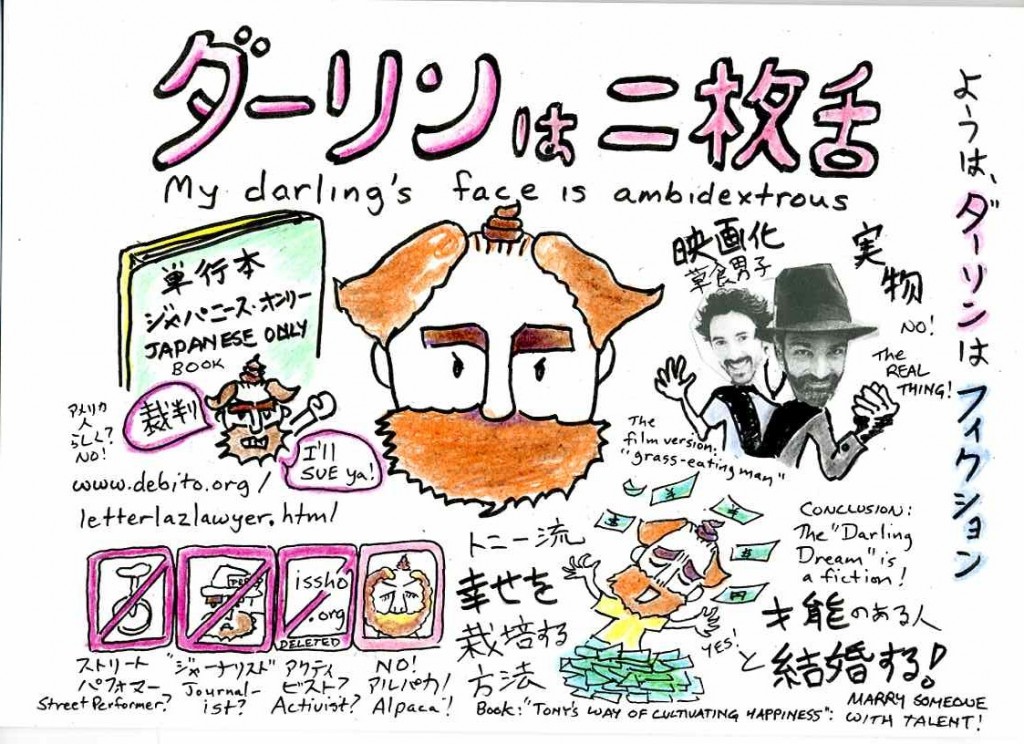 ダーリンは二枚舌
My darling's face is ambidextrous
ようは、ダーリンはフィクション
単行本
ジャパニーズ・オンリー
JAPANESE ONLY
BOOK
アメリカ
人
らしく?
NO!
裁判
I'll
SUE ya!
www.debito.org/
letterlazlawyer.html
映画化
草食男子
実物
NO!
The
REAL
THING!
The
film version:
"grass-eating man"
issho
.org
DELETED
ストリート
パフォマー
Street Performer?
"ジャーナリスト"
Journal-
ist?
アクティ
ビスト?
Activist?
NO!
アルパカ!
Alpaca!
トニー流
幸せを
栽培する
方法
YES!
Book: "TONY'S WAY OF CULTIVATING HAPPINESS":
CONCLUSION:
The "Darling
Dream" is
a fiction!
才能のある人
と結婚する!
MARRY SOMEONE
WITH TALENT!